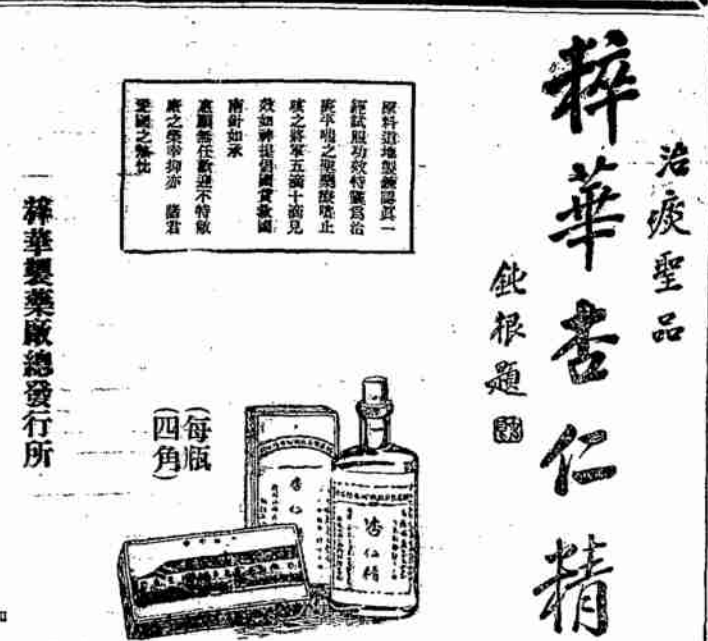 治痰聖品
粹華杏仁精
鈍根題
原料道地製鍊認真一
經試服功效特靈爲治
痰平喘之聖藥療嗆止
咳之將軍五滴十滴見
效如神提倡國貨救國
南針如承
惠顧無任歡迎不特敝
廠之榮幸抑亦 諸君
愛國之熱忱
(每瓶
四角)
杏仁精
杏仁精
粹華製藥廠總發行所